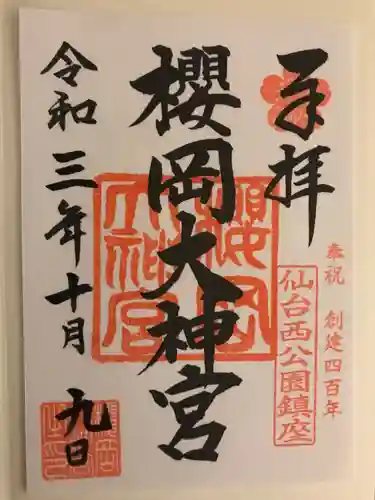 奉拝
奉祝 創建四百年
仙台西公園鎮座
櫻岡大神宮
櫻岡大神宮
令和三年十月九日